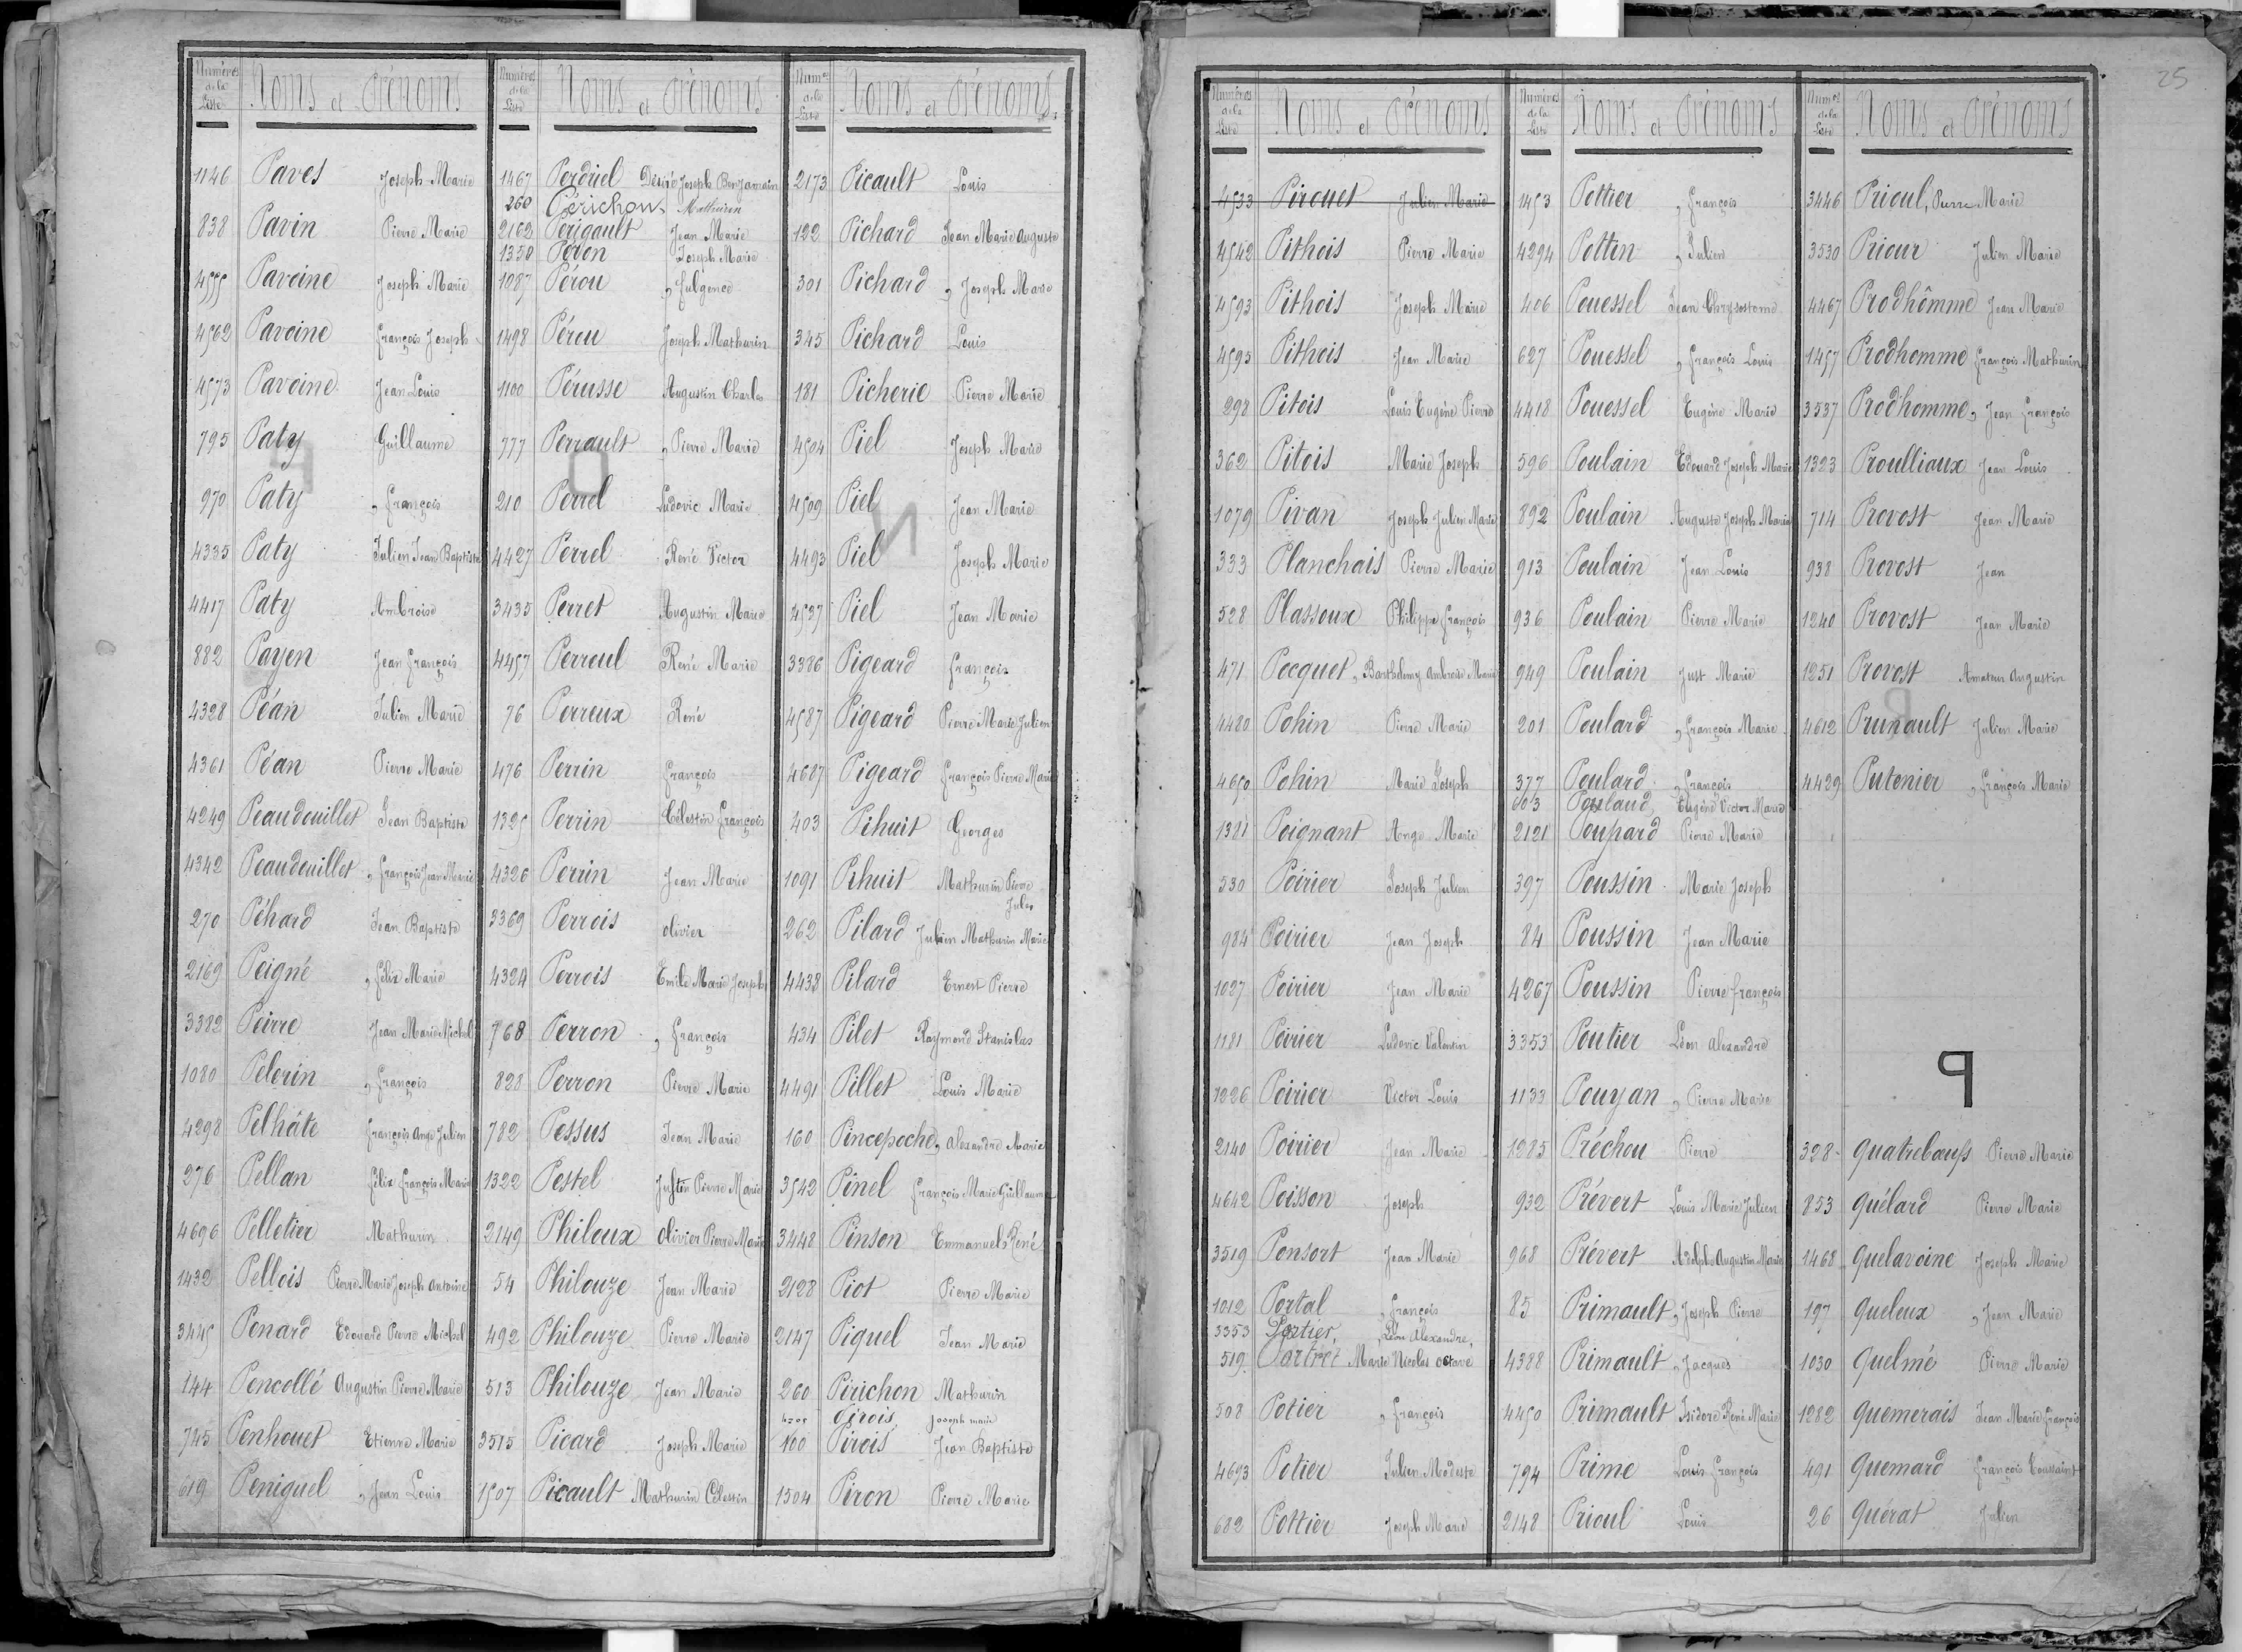 Numéros de la Liste Noms et Prénoms
1146 Paves Joseph Marie
838 Pavin Pierre Marie
4555 Pavoine Joseph Marie
4562 Pavoine François Joseph
4573 Pavoine Jean Louis
795 Paty Guillaume
970 Paty François
4335 Paty Julien Jean Baptiste
4417 Paty Ambroise
882 Payen Jean François
4328 Péan Julien Marie
4361 Péan Pierre Marie
4249 Peaudouillet Jean Baptiste
4342 Peaudouillet François Jean Marie
270 Péhard Jean Baptiste
2169 Peigné Félix Marie
3382 Peirre Jean Marie Michel
1080 Pelerin François
4298 Pelhâte François Ange Julien
276 Pellan Félix François Marie
4696 Pelletier Mathurin
1432 Pellois Pierre Marie Joseph Antoine
3445 Penard Edouard Pierre Michel
144 Pencollé Augustin Pierre Marie
745 Penhouet Etienne Marie
619 Peniguel Jean Louis
Numéros de la Liste Noms et Prénoms
1467 Perdriel Désiré Joseph Benjamain
260 Périchon Mathurin
2162 Perigault Jean Marie
1350 Peron Joseph Marie
1087 Pérou Fulgence
1498 Pérou Joseph Mathurin
1100 Pérusse Augustin Charles
777 Perrault Pierre Marie
210 Perrel Ludovic Marie
4427 Perrel René Victor
3435 Perret Augustin Marie
4457 Perreul René Marie
76 Perreux René
476 Perrin François
1325 Perrin Célestin François
4326 Perrin Jean Marie
3369 Perrois Olivier
4324 Perrois Emile Marie Joseph
768 Perron François
828 Perron Pierre Marie
782 Pessus Jean Marie
1322 Pestel Justin Pierre Marie
2149 Philoux Olivier Pierre Marie
54 Philouze Jean Marie
492 Philouze Pierre Marie
513 Philouze Jean Marie
3515 Picard Joseph Marie
1507 Picault Mathurin Célestin
Num. de la Liste Noms et Prénoms
2173 Picault Louis
122 Pichard Jean Marie Auguste
301 Pichard Joseph Marie
345 Pichard Louis
181 Picherie Pierre Marie
4504 Piel Joseph Marie
4509 Piel Jean Marie
4493 Piel Joseph Marie
4537 Piel Jean Marie
3386 Pigeard François
4587 Pigeard Pierre Marie Julien
4687 Pigeard François Pierre Marie
403 Pihuit Georges
1091 Pihuit Mathurin Pierre Jules
262 Pilard Julien Mathurin Marie
4438 Pilard Ernest Pierre
434 Pilet Raymond Stanislas
4491 Pillet Louis Marie
160 Pincepoche Alexandre Marie
3542 Pinel François Marie Guillaume
3448 Pinson Emmanuel René
2128 Piot Pierre Marie
2147 Piquel Jean Marie
260 Pirichon Mathurin
Pirois, Joseph Marie
100 Pirois Jean Baptiste
1504 Piron Pierre Marie
25
Numéros de la Liste Noms et Prénoms
4533 Pirouet Julien Marie
4542 Pithois Pierre Marie
4593 Pithois Joseph Marie
4595 Pithois Jean Marie
298 Pitois Louis Eugène Pierre
362 Pitois Marie Joseph
1079 Pivan Joseph Julien Marie
333 Planchais Pierre Marie
528 Plassoux Philippe François
471 Pocquet Barthélemy Ambroise Marie
4480 Pohin Pierre Marie
4650 Pohin Marie Joseph
1381 Poignant Ange Marie
530 Poirier Joseph Julien
984 Poirier Jean Joseph
1027 Poirier Jean Marie
1181 Poirier Ludovic Valentin
1226 Poirier Victor Louis
2140 Poirier Jean Marie
4642 Poisson Joseph
3519 Ponsort Jean Marie
1012 Portal François
3353 Portier, Léon Alexandre,
519 Portret Marie Nicolas Octave
508 Potier François
4693 Potier Julien Modeste
682 Pottier Joseph Marie
Numéros de la Liste Noms et Prénoms
1453 Pottier François
4294 Pottin Julien
406 Pouessel Jean Chrysostome
627 Pouessel François Louis
4418 Pouessel Eugène Marie
596 Poulain Edouard Joseph Marie
892 Poulain Auguste Joseph Marie
913 Poulain Jean Louis
936 Poulain Pierre Marie
949 Poulain Just Marie
201 Poulard François Marie
377 Poulard François
603 Poulaud, Eugène Victor Marie
2121 Poupard Pierre Marie
397 Poussin Marie Joseph
84 Poussin Jean Marie
4267 Poussin Pierre François
3353 Poutier Léon Alexandre
1133 Pouyan Pierre Marie
1285 Préchou Pierre
932 Prévert Louis Marie Julien
968 Prévert Adolphe Augustin Marie
85 Primault Joseph Pierre
4388 Primault Jacques
4450 Primault Isidore René Marie
794 Prime Louis François
2148 Prioul Louis
Num. de la Liste Noms et Prénoms
3446 Prioul, Pierre Marie
3530 Priour Julien Marie
4467 Prodhômme Jean Marie
1457 Prodhomme François Mathurin
3537 Prodhomme Jean François
1323 Proulliaux Jean Louis
714 Provost Jean Marie
938 Provost Jean
1240 Provost Jean Marie
1251 Provost Amateur Augustin
4612 Prunault Julien Marie
4429 Putenier François Marie
328 Quatrebœufs Pierre Marie
853 Quélard Pierre Marie
1468 Quelavoine Joseph Marie
197 Queleux Jean Marie
1030 Quelmé Pierre Marie
1282 Quemerais Jean Marie François
491 Quemard François Toussaint
26 Quérat Julien